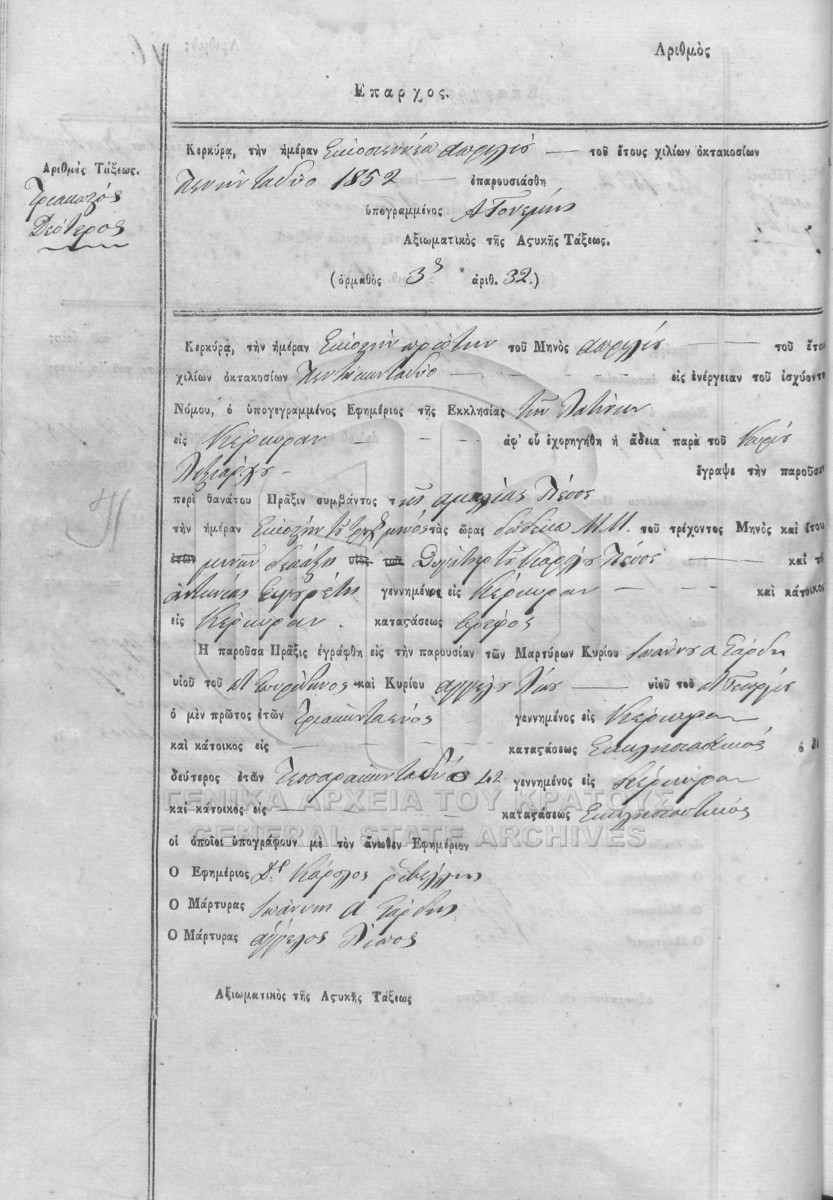 Ἀριθμὸς
Ἔπαρχος.
Ἀριθμὸς Τάξεως.
Τριακοςός
Δεύτερος
Κερκύρα, τὴν ἡμέραν Εικοσιεννέα Απριλίȣ — τοῦ ἔτους χιλίων ὀκτακοσίων
Πενήνταδύο 1852 — ἐπαρουσιάσθη
ὑπογραμμένος
Ἀξιωματικὸς τῆς Ἀςυκῆς Τάξεως.
(ὁρμαθὸς 3 ἀριθ. 32.)
Κερκύρα, τὴν ἡμέραν Εικοςὴν πρώτην τοῦ Μηνὸς Απριλίȣ — τοῦ ἔτου
χιλίων ὀκτακοσίων Πεντήκονταδύο — εἰς ἐνέργειαν τοῦ ἰσχύοντο
Νόμου, ὁ ὑπογεγραμμένος Ἐφημέριος τῆς Ἐκκλησίας των Λατίνων
εἰς Κέρκυραν — ἀφ' οὗ ἐχορηγήθη ἡ ἄδεια παρὰ τοῦ Κυρίȣ
Ληξιάρχȣ — ἔγραψε τὴν παροῦσαν
περὶ θανάτου Πρᾶξιν συμβάντος της Αμαλίας
τὴν ἡμέραν Εικοςὴν μηνός τὰς ὥρας δώδεκα Μ.Μ. τοῦ τρέχοντος Μηνὸς καὶ ἔτου
ἐτῶν μηνών υἱὸς τοῦ Θυγάτηρ τȣ Καρόλȣ — καὶ τῆ
Αντωνίας γεννημένος εἰς Κέρκυραν — καὶ κάτοικος
εἰς Κέρκυραν. καταςάσεως βρέφος
Ἡ παροῦσα Πρᾶξις ἐγράφθη εἰς τὴν παρουσίαν τῶν Μαρτύρων Κυρίου Ιωάννȣ Α Γάρδη
υἱοῦ τοῦ Σπυρίδωνος καὶ Κυρίου Αγγέλȣ — υἱοῦ τοῦ Γεωργίȣ
ὁ μὲν πρῶτος ἐτῶν Τριακονταενός γεννημένος εἰς Κέρκυραν
καὶ κάτοικος εἰς — καταςάσεως Εκκλησιαστικός ὁ δὲ
δεύτερος ἐτῶν Τεσσαρακονταδύο 42 γεννημένος εἰς Κέρκυραν
καὶ κάτοικος εἰς — καταςάσεως Εκκλησιαστικός
οἱ ὁποῖοι ὑπογράφουν μὲ τὸν ἄνωθεν Ἐφημέριον
Ὁ Ἐφημέριος Κάρολος
Ὁ Μάρτυρας Ιωάννης Α Γάρδης
Ὁ Μάρτυρας Αγγελος
Ἀξιωματικὸς τῆς Ἀςυκῆς Τάξεως
ΓΕΝΙΚΑ ΑΡΧΕΙΑ ΤΟΥ ΚΡΑΤΟΥΣ
GENERAL STATE ARCHIVES